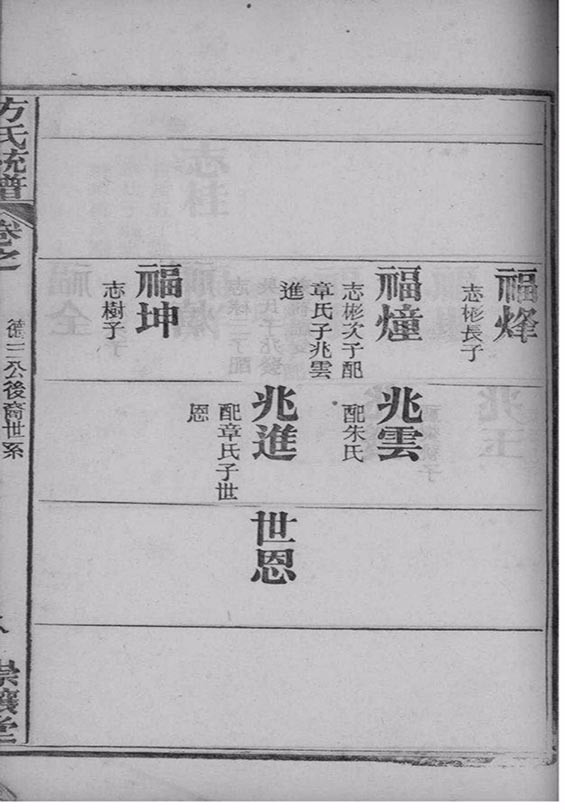 福烽
志彬長子
福燑
志彬次子配
章氏子兆雲
進
福坤
志樹子
兆雲
配朱氏
兆進
配章氏子世
恩
世恩
方氏統譜
卷之
德三公後裔世系
堂